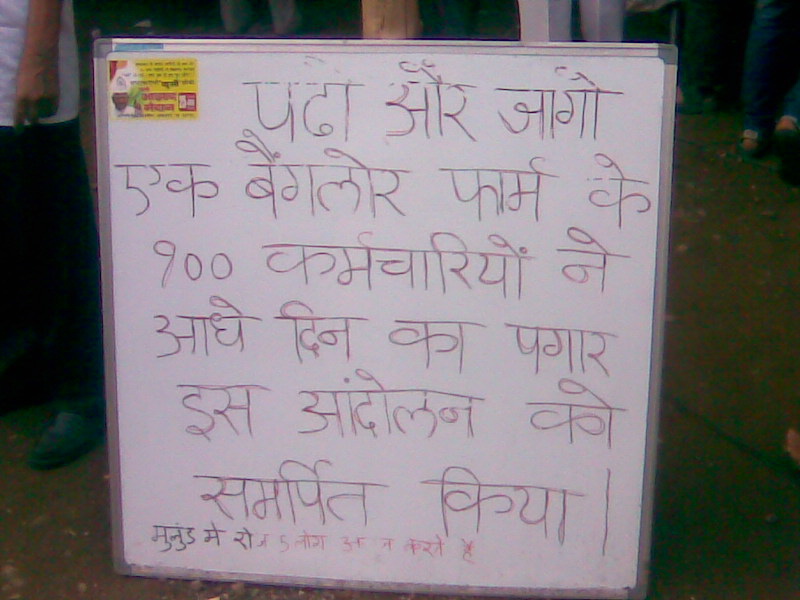 पढो और जागो
एक बैंगलोर फार्म के
१०० कर्मचारियों ने
आधे दिन का पगार
इस आंदोलन को
समर्पित किया |
मुलुंड मे लोग करते है